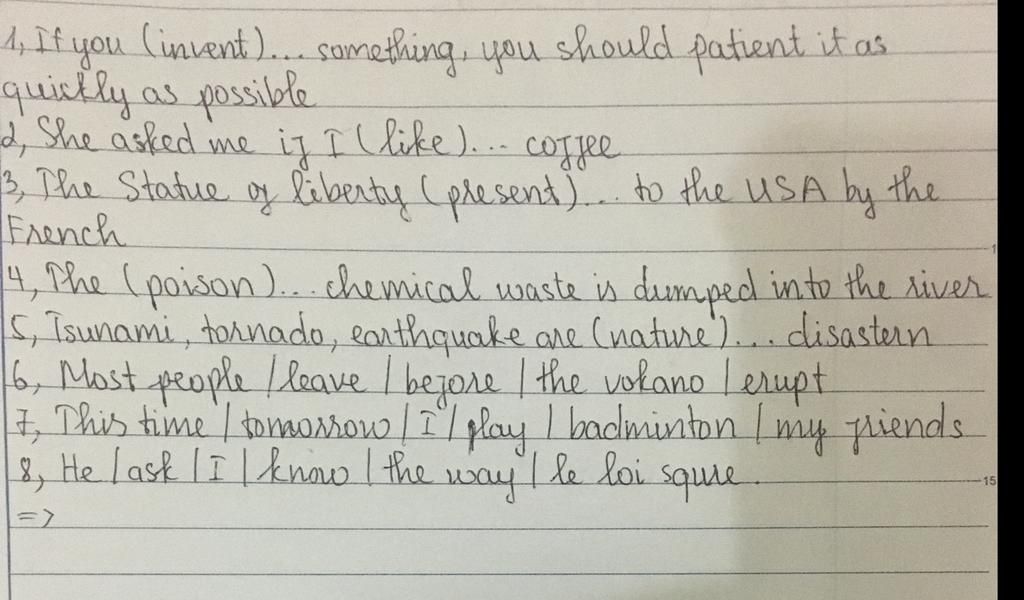 1, If you (invent)... something, you should patient it as
quickly as possible
2, She asked me if I (like)... coffee
3, The Statue of liberty (present)... to the USA by the
French
4, The (poison)... chemical waste is dumped into the river
5, Tsunami, tornado, earthquake are (nature)... disastern
6, Most people / leave / before / the volcano / erupt
7, This time / tomorrow / I / play / badminton / my friends
8, He / ask / I / know / the way / le loi squre.
15
=>